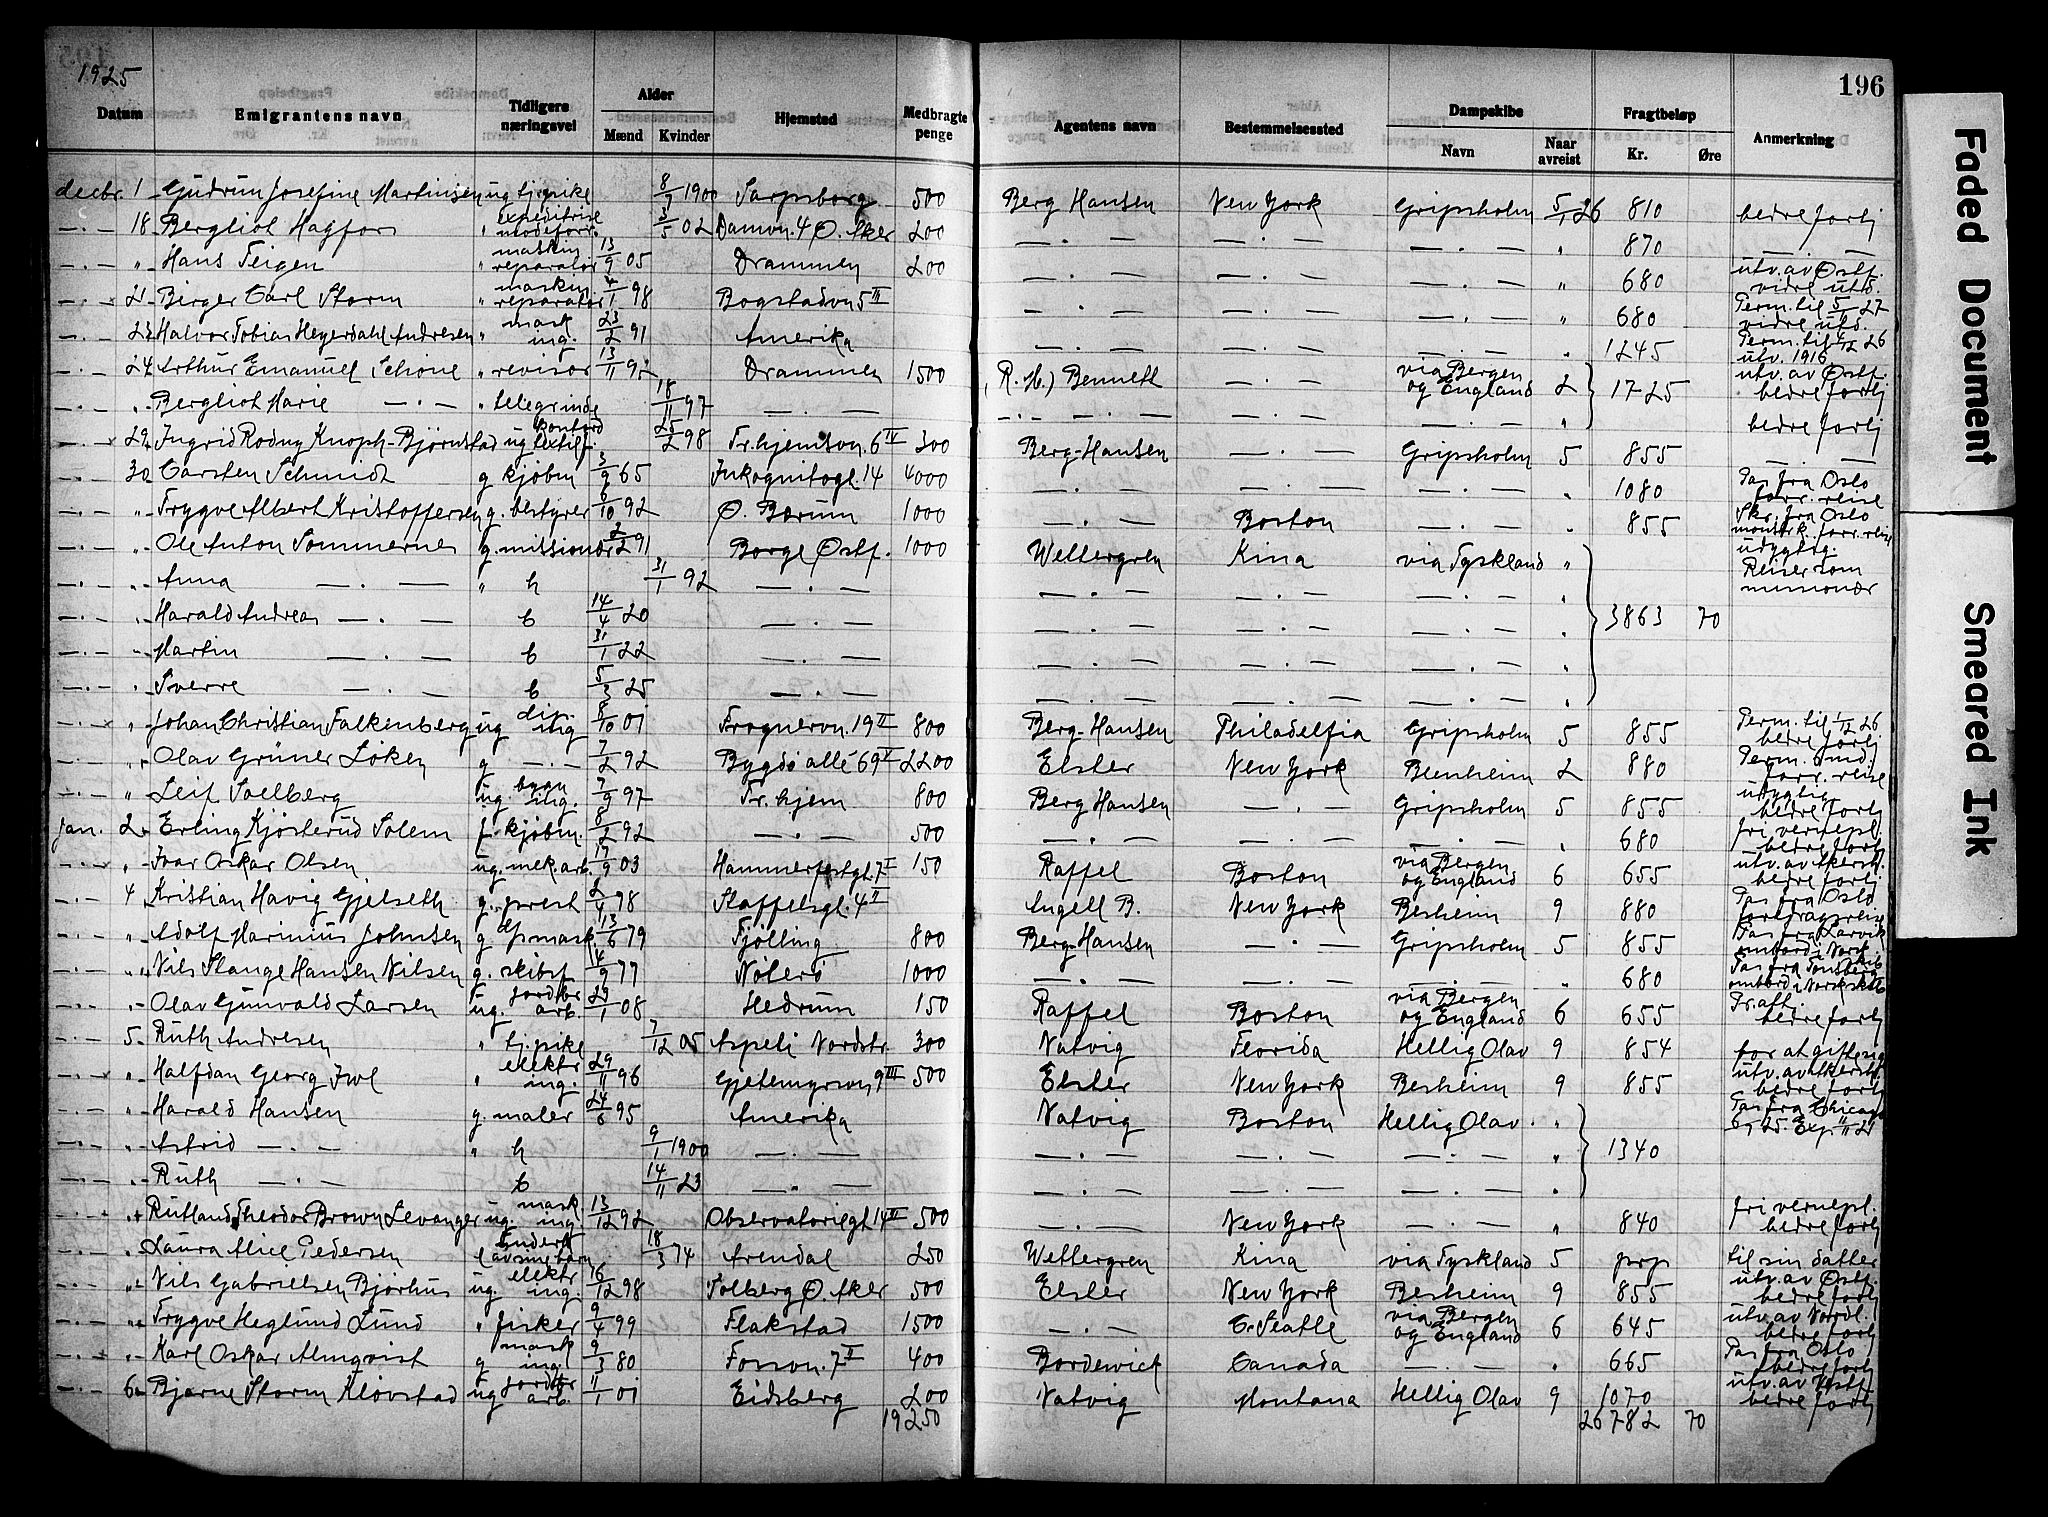 196
1925
Datum Emigrantens navn Tidligere næringsvei Alder Mænd Kvinder Hjemsted Medbragte penge Agentens navn Bestemmelsessted Dampskibe Navn Naar avreist Fragtbeløp Kr. Øre Anmerkning
decbr. 1 Gudrun Josefine Martinsen ug tj.pike 8/7 1900 Sarpsborg 500 Berg Hansen New York Gripsholm 5/1 26 810 bedre forhj
—.— 18 Bergliot Hagfors " expeditrise modeforr. 3/5 02 Damvn. 4 Ø. Aker 200 —.— —.— —.— " 870 —.—
—.— " Hans Teigen " maskin reparatør 13/9 05 Drammen 200 —.— —.— —.— " 680 utv. av Østf. vidre utd.
—.— 21 Birger Carl Storm " maskin reparatør 4/1 98 Bogstadvn 5 III —.— —.— —.— " 680 Perm. til 5/11 27 vidre utd.
—.— 23 Halvor Tobias Heyerdahl Andresen " mask ing. 23/2 91 Amerika —.— —.— —.— " 1245 Perm. til 4/12 26 utv. 1916
—.— 24 Arthur Emanuel Schöne " revisor 13/11 95 Drammen 1500 (R. H.) Bennett —.— via Bergen og England 2 1725 utv. av Østf. bedre forhj
—.— " Bergliot Marie —.— " telegrinde 18/11 97 —.— —.— —.— —.— " bedre forhj
—.— 29 Ingrid Rodny Knoph-Bjørnstad ug kontord textilf. 25/2 98 Fr.hjemsvn. 6 IV 300 Berg-Hansen —.— Gripsholm 5 855 —.—
—.— 30 Carsten Schmidt g kjøbm 3/9 65 Inkognitogt. 14 4000 —.— —.— —.— " 1080 Pas fra Oslo forr. reise
—.— " Trygve Albert Kristoffersen g. bestyrer 6/10 92 Ø. Bærum 1000 —.— Boston —.— " 855 Skr. fra Oslo mønstrk. forr. reise
—.— " Ole Anton Sommernes g. missionær 3/2 91 Borge Østf. 1000 Wettergren Kina via Tyskland " udygtig. Reiser som missionær
—.— " Anna —.— " h 31/1 92 —.— —.— —.— —.— "
—.— " Harald Andreas —.— b 14/4 20 —.— —.— —.— —.— " 3863 70
—.— " Martin —.— b 31/1 22 —.— —.— —.— —.— "
—.— " Sverre —.— b 5/3 25 —.— —.— —.— —.— "
—.— " Johan Christian Falkenberg ug dip. ing 8/10 01 Frognervn. 19 II 800 Berg-Hansen Philadelfia Gripsholm 5 855 Perm. til 1/12 26 bedre forhj
—.— " Olav Grüner Löken g —.— 7/2 92 Bygdö allé 69 V 2200 Elster New York Benheim 2 880 Perm. forr. reise
—.— " Leif Solberg ug. bygn ing. 7/9 97 Fr.hjem 800 Berg Hansen —.— Gripsholm 5 855 udygtig bedre forhj
jan. 2 Erling Kjösterud Solem f. kjøbm. 8/2 92 —.— 500 —.— —.— —.— " 680 fri vernepl. bedre forhj
—.— " Ivar Oskar Olsen ug. mek. arb. 17/9 03 Hammerfestgt. 7 I 150 Raffel Boston via Bergen og England 6 655 utv. av Akersh. bedre forhj
—.— 4 Kristian Havig Gjelseth g. prest 2/4 78 Staffelsgt. 4 II Angell B. New York Besheim 9 880 Pas fra Oslo foredragsreise
—.— " Adolf Marinius Johnsen g mask. 13/6 79 Tjølling 800 Berg-Hansen —.— Gripsholm 5 855 Pas fra Larvik ombord i Norsk skib
—.— " Nils Stange Hansen Nilsen g. skibsf 4/9 77 Nøterø 1000 —.— —.— —.— " 680 Pas fra Tønsberg ombord i Norsk skib
—.— " Olav Gunvald Larsen ug. jordbr arb. 23/1 08 Hedrum 150 Raffel Boston via Bergen og England 6 655 Pr. att. bedre forhj
—.— 5 Ruth Andresen " tj.pike 7/12 05 Aspeli Nordstr. 300 Natvig Florida Hellig Olav 9 854 for at gifte sig
—.— " Halfdan Georg Juel " elektr ing. 29/11 96 Gjetemyrsvn. 9 III 500 Elster New York Besheim 9 855 utv. av Akersh. bedre forhj
—.— " Harald Hansen g. maler 24/6 95 Amerika Natvig Boston Hellig Olav " Pas fra Chicago
—.— " Astrid —.— " h 9/1 1900 —.— —.— —.— —.— " 1340
—.— " Ruth —.— b 14/11 23 —.— —.— —.— —.— "
—.— " Rutland Theodor Brown Levanger ug. mask ing 13/12 92 Observatoriegt 14 II 500 —.— New York —.— " 840 fri vernepl. bedre forhj
—.— " Laura Alice Pedersen underh av sine barn 18/3 74 Arendal 250 Wettergren Kina via Tyskland 5 prp til sin datter
—.— " Nils Gabrielsen Bjørhus ug. elektr ing. 16/12 98 Solberg Ø. Aker 500 Elster New York Besheim 9 855 utv. av Østf. bedre forhj
—.— " Trygve Heglund Lund " fisker 9/4 99 Flakstad 1500 —.— Seatle via Bergen og England 6 645 utv. av Nordl. bedre forhj
—.— " Karl Oskar Almqvist g mask ing. 9/3 80 Fossvn. 7 II 400 Bordewick Canada —.— " 665 Pas fra Oslo bedre forhj
—.— 6 Bjarne Storm Kløvstad ug jordbr arb. 11/1 01 Eidsberg 200 Natvig Montana Hellig Olav 9 1070 utv. av Østf. bedre forhj
19250 26782 70
Faded Document
Smeared Ink